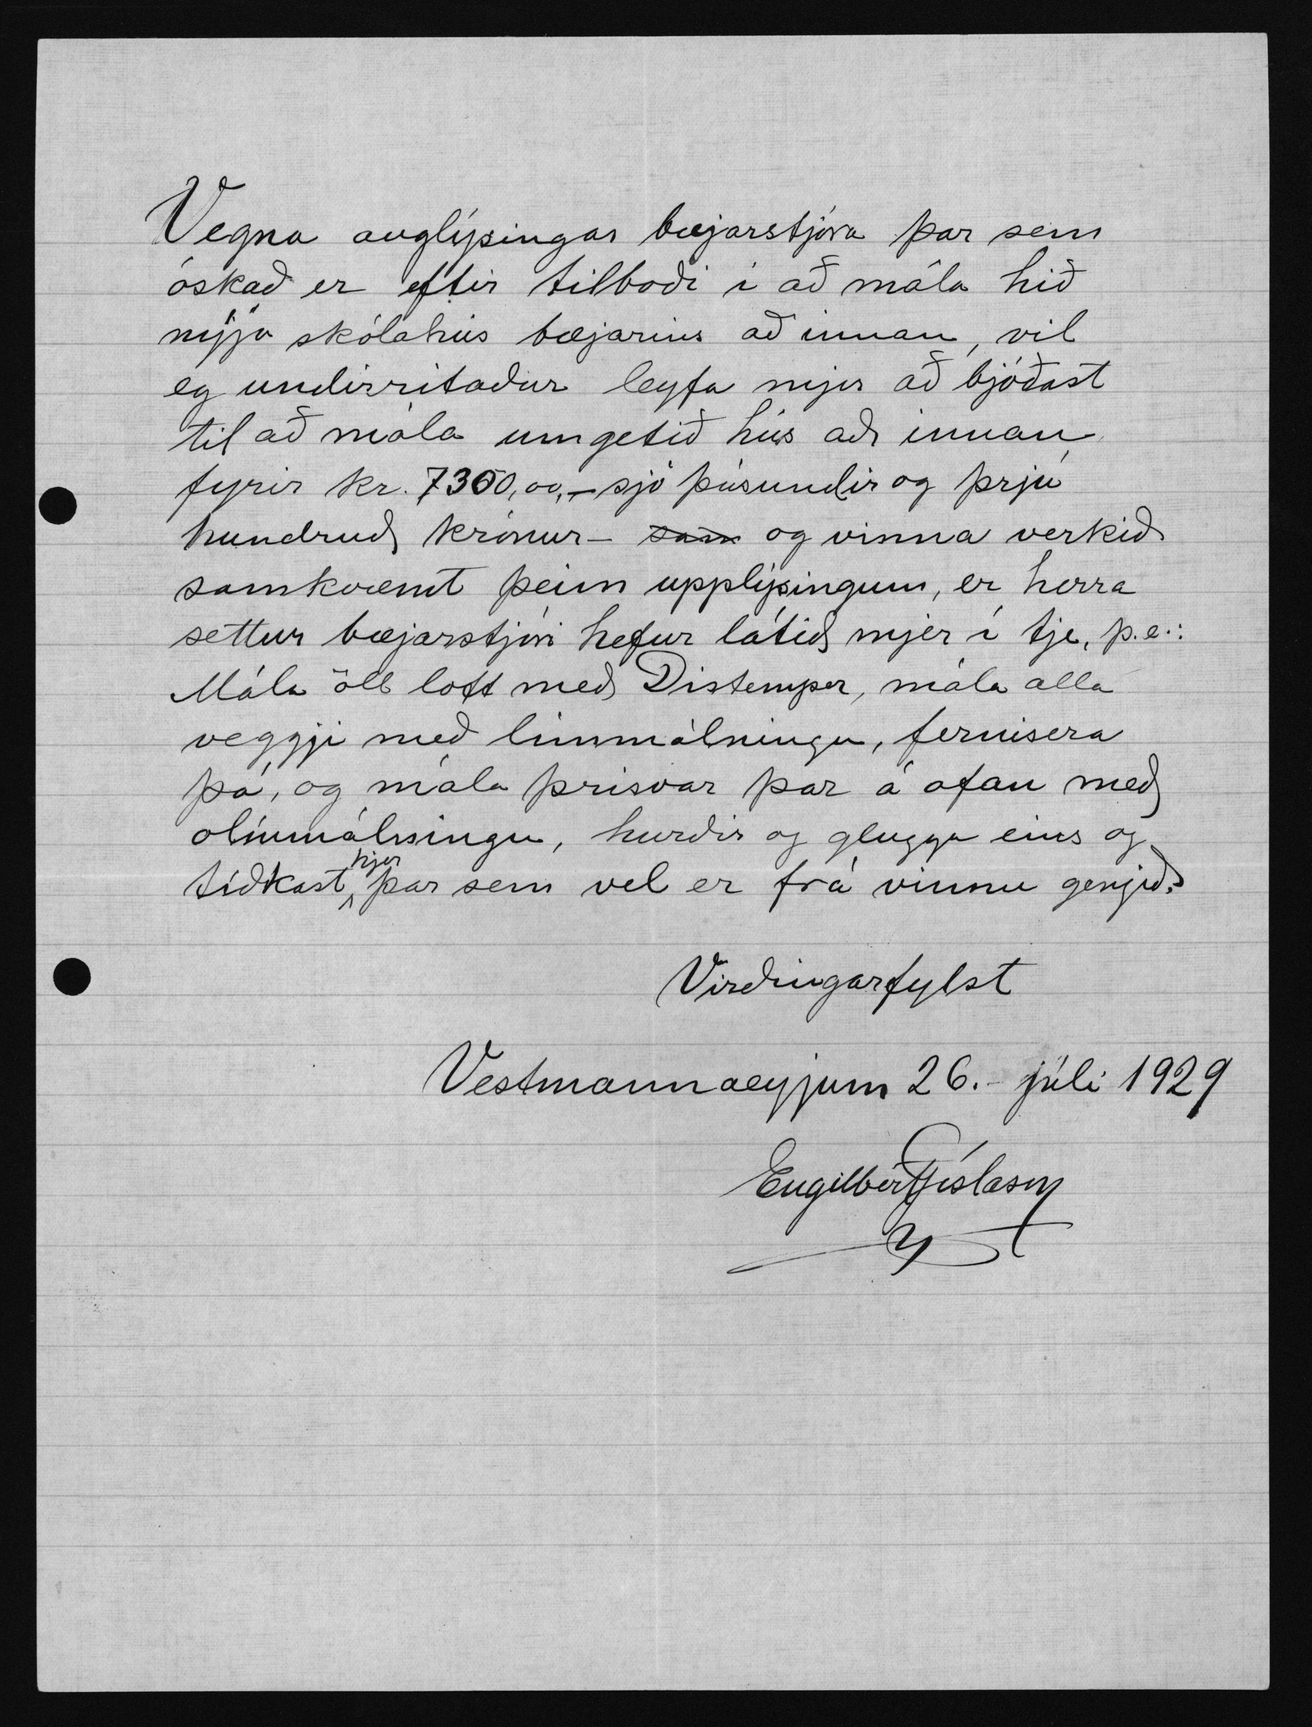 Vegna auglýsingar bæjarstjóra þar sem
óskað er eftir tilboði í að mála hið
nýja skólahús bæjarins að innan, vil
eg undirritaður leyfa mjer að bjóðast
til að mála umgetið hús að innan
fyrir kr. 7300,oo,- sjö þúsundir og þrjú
hundruð krónur - sam og vinna verkið
samkvæmt þeim upplýsingum, er herra
settur bæjarstjóri hefur látið mjer í tje, þ.e.:
Mála öll loft með Distemper, mála alla
veggji með límmálningu, fernisera
þá, og mála þrisvar þar á ofan með
olíumálningu, hurðir og glugga eins og
tíðkast hjer þar sem vel er frá vinnu gengið.
Virðingarfylst
Vestmannaeyjum 26.- júli 1929
Engilbert Gíslason